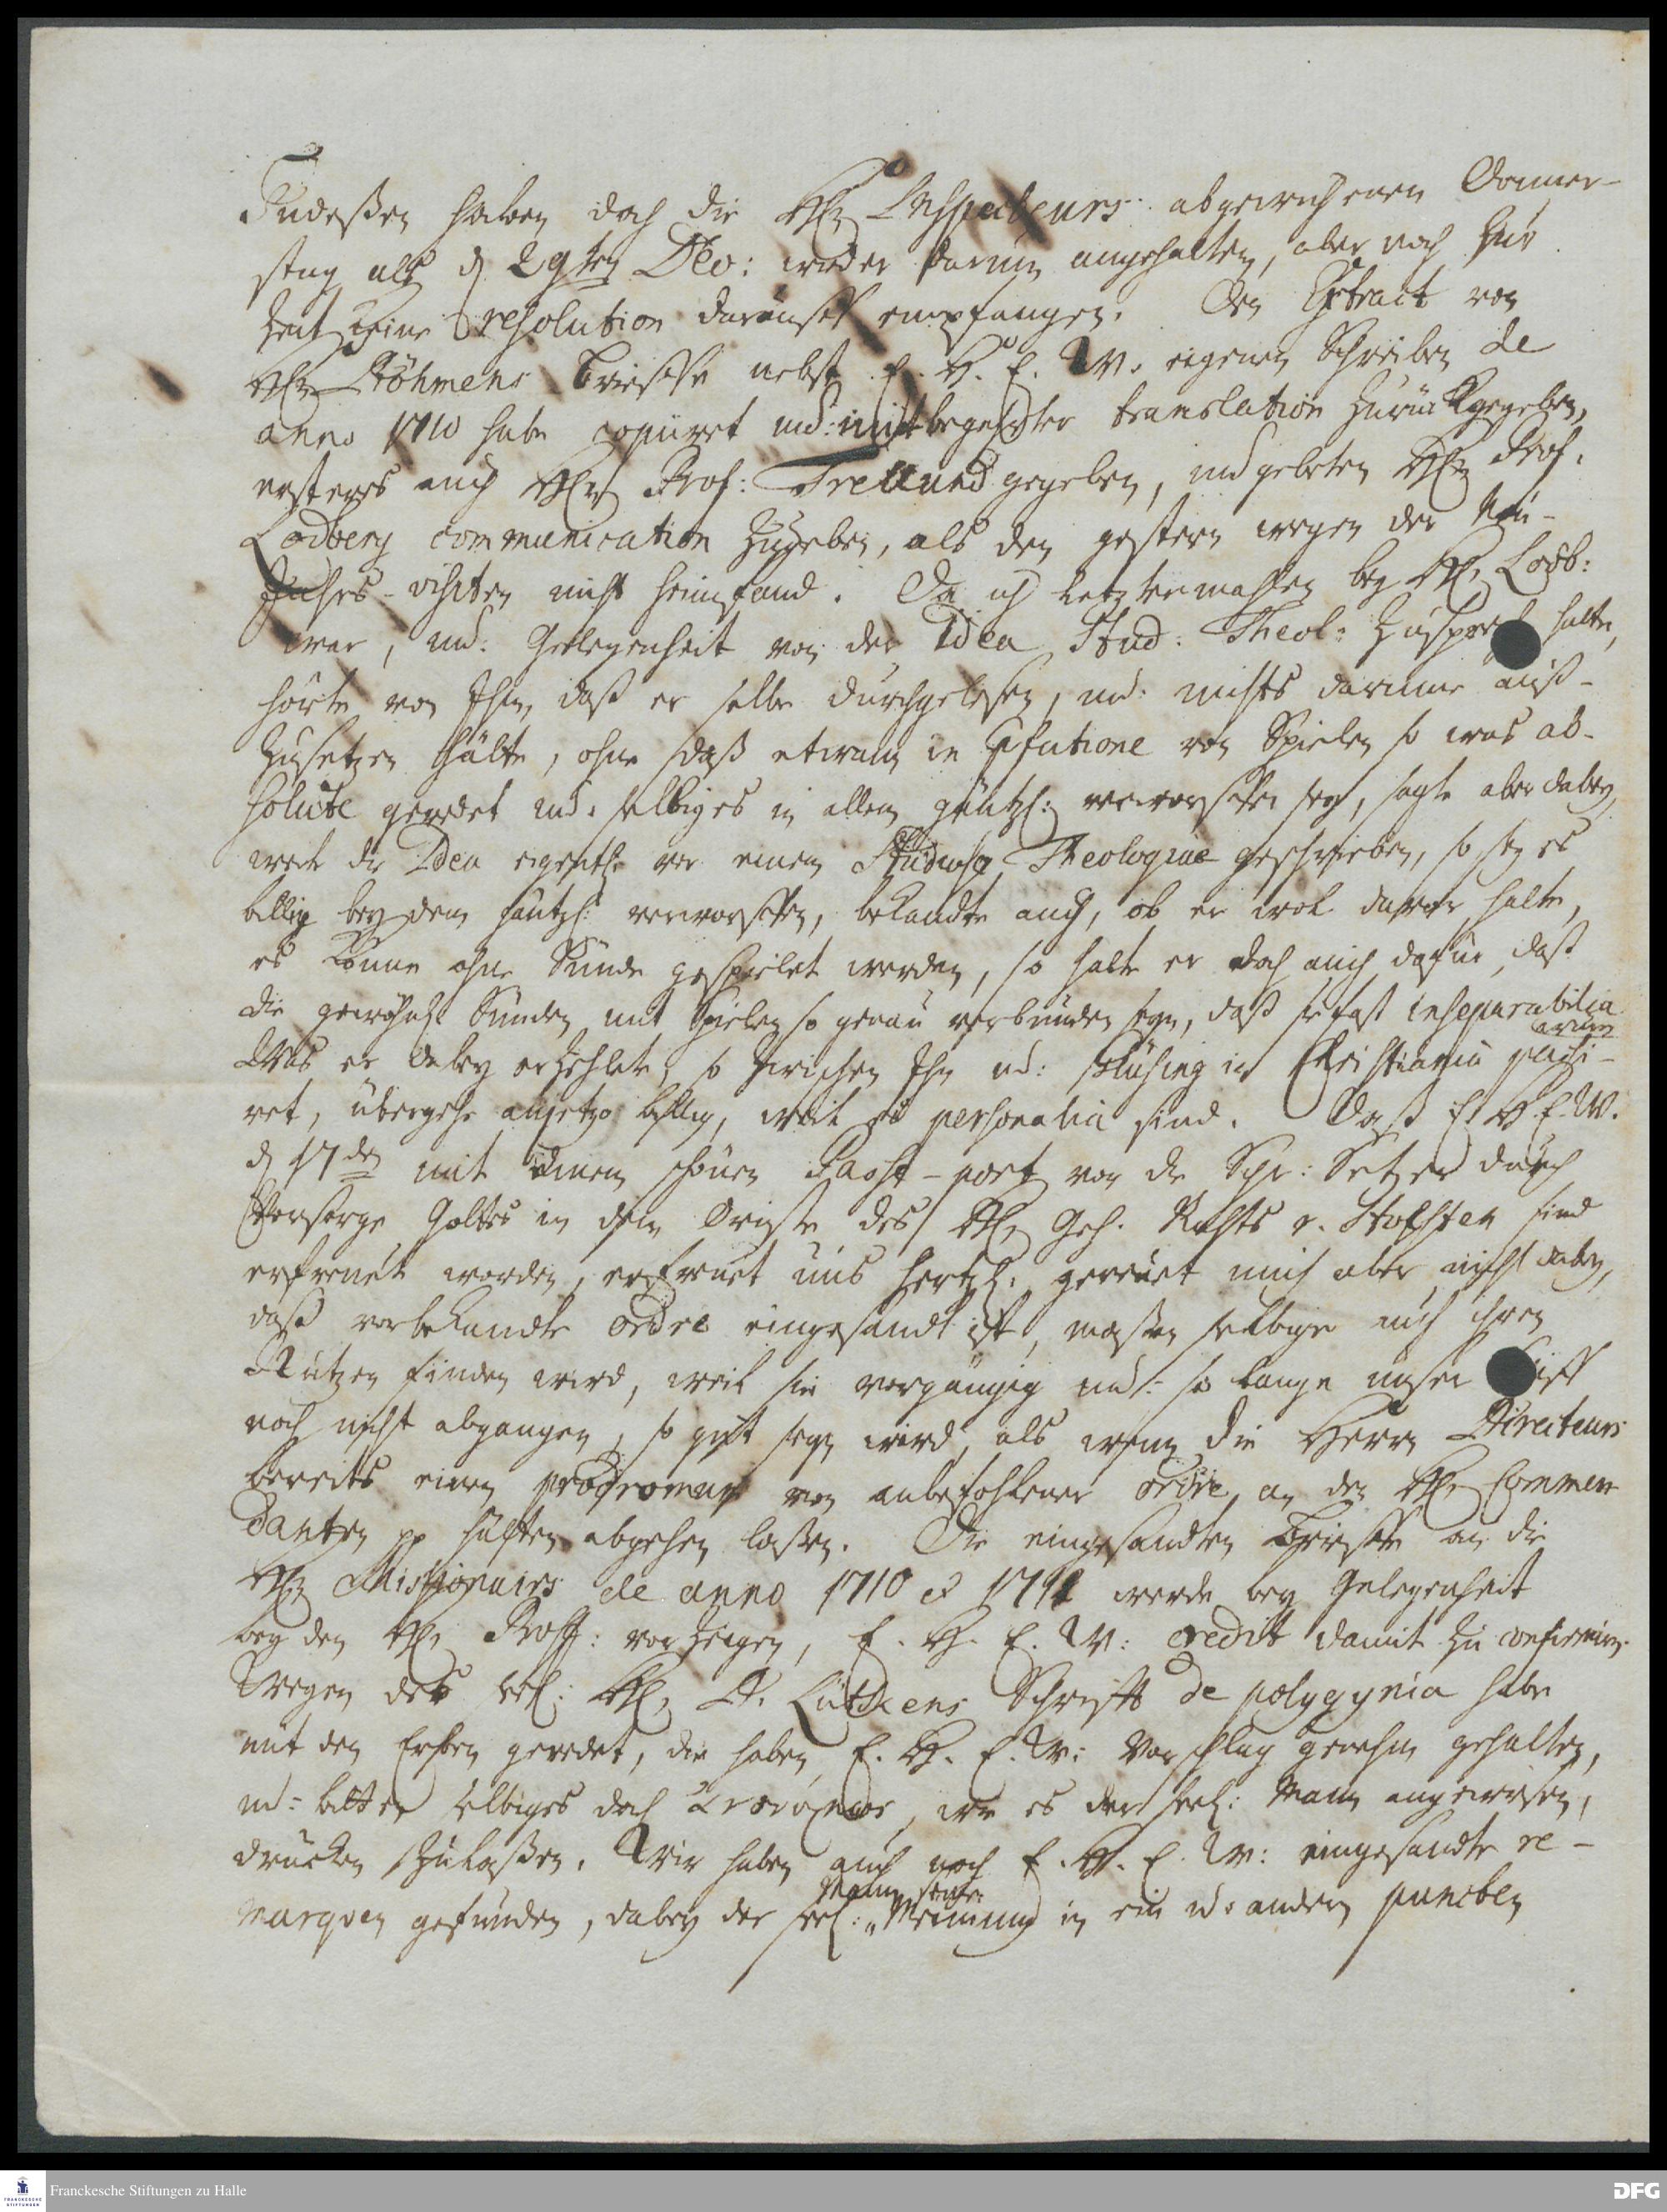 Indeßen haben doch die HErn Inspecteurs abgewichenen Donner-
stag als d. 29ten Dec: wieder darum angehalten, aber noch zur
Zeit keine resolution darauff empfangen. Den Extract von
HErn Böhmens Brieffe nebst E. H. E. W. eigenen Schreiben de
anno 1710 habe copiiret und: mit begehrter translation zurückgegeben,
ersteres auch HErn Prof: Trellund gegeben, und gebeten HErn Prof.
Lodberg communication zugeben, als den gestern wegen der Neu-
Jahrs-visiten nicht heimfand. Da ich letztermahlen bey HEn Lodb:
war, und: Gelegenheit von der Idea Stud: Theol: zusprechen hatte,
hörte von Ihm, daß er selbe durchgelesen, und: nichts darinne auß-
zusetzen hätte, ohne daß etwann in von Spielen so was ab-
solute geredet und: selbiges in allem gäntzl: verworffen sey, sagte aber dabey,
weil die Idea eigentl: vor einem Studioso Theologiae geschrieben, so sey es
billig bey dem gäntzl: verworffen, bekandte auch, ob er wol davor halte,
es könne ohne Sünde gespielet werden, so halte er doch auch dafür, daß
die gewöhnl: Sünden mit Spielen so genau verbunden seyn, daß sie fast inseparabilia
Was er dabey erzehlete, so zwischen Ihm und: in Christiania passi-
ret, übergehe anjetzo billig, weil es personalia sind. Daß E. H. E. W.
d. 17den mit einem schönen Passe-port vor die Schr: Setzer durch
Vorsorge Gottes in dem Brieffe des HEn Geh. Rahts v. Holsten sind
erfreuet worden, erfreuet uns hertzl: gereuet mich aber nicht dabey,
daß vorbekandte ordre eingesandt ist, maßen selbige auch ihren
Nutzen finden wird, weil sie vorgängig und: so lange unser Schiff
noch nicht abgangen, so gut seyn wird, als wenn die Herrn Directeurs
bereits einen prodromum von anbefohlener ordre an den HEn Commen-
danten pp hätten abgehen laßen. Die eingesandten Brieffe an die
HErn Missionairs de anno 1710 et 1711 werde bey Gelegenheit
bey den HEn Proff: vorzeigen, E. H. E. W: credit damit zu confirmiren.
Wegen des seel: HEn D. Lütkens Schrifft de polygynia habe
mit den Erben geredet, die haben E. H. E. W: Vorschlag genehm gehalten,
und: bitten selbiges doch, wie es der seel: Mann angewiesen,
drucken zulaßen. Wir haben auch noch E. H. E. W: eingesandte re-
marquen gefunden, dabey der seel: Mann seine Meinung in ein und: andern puncten